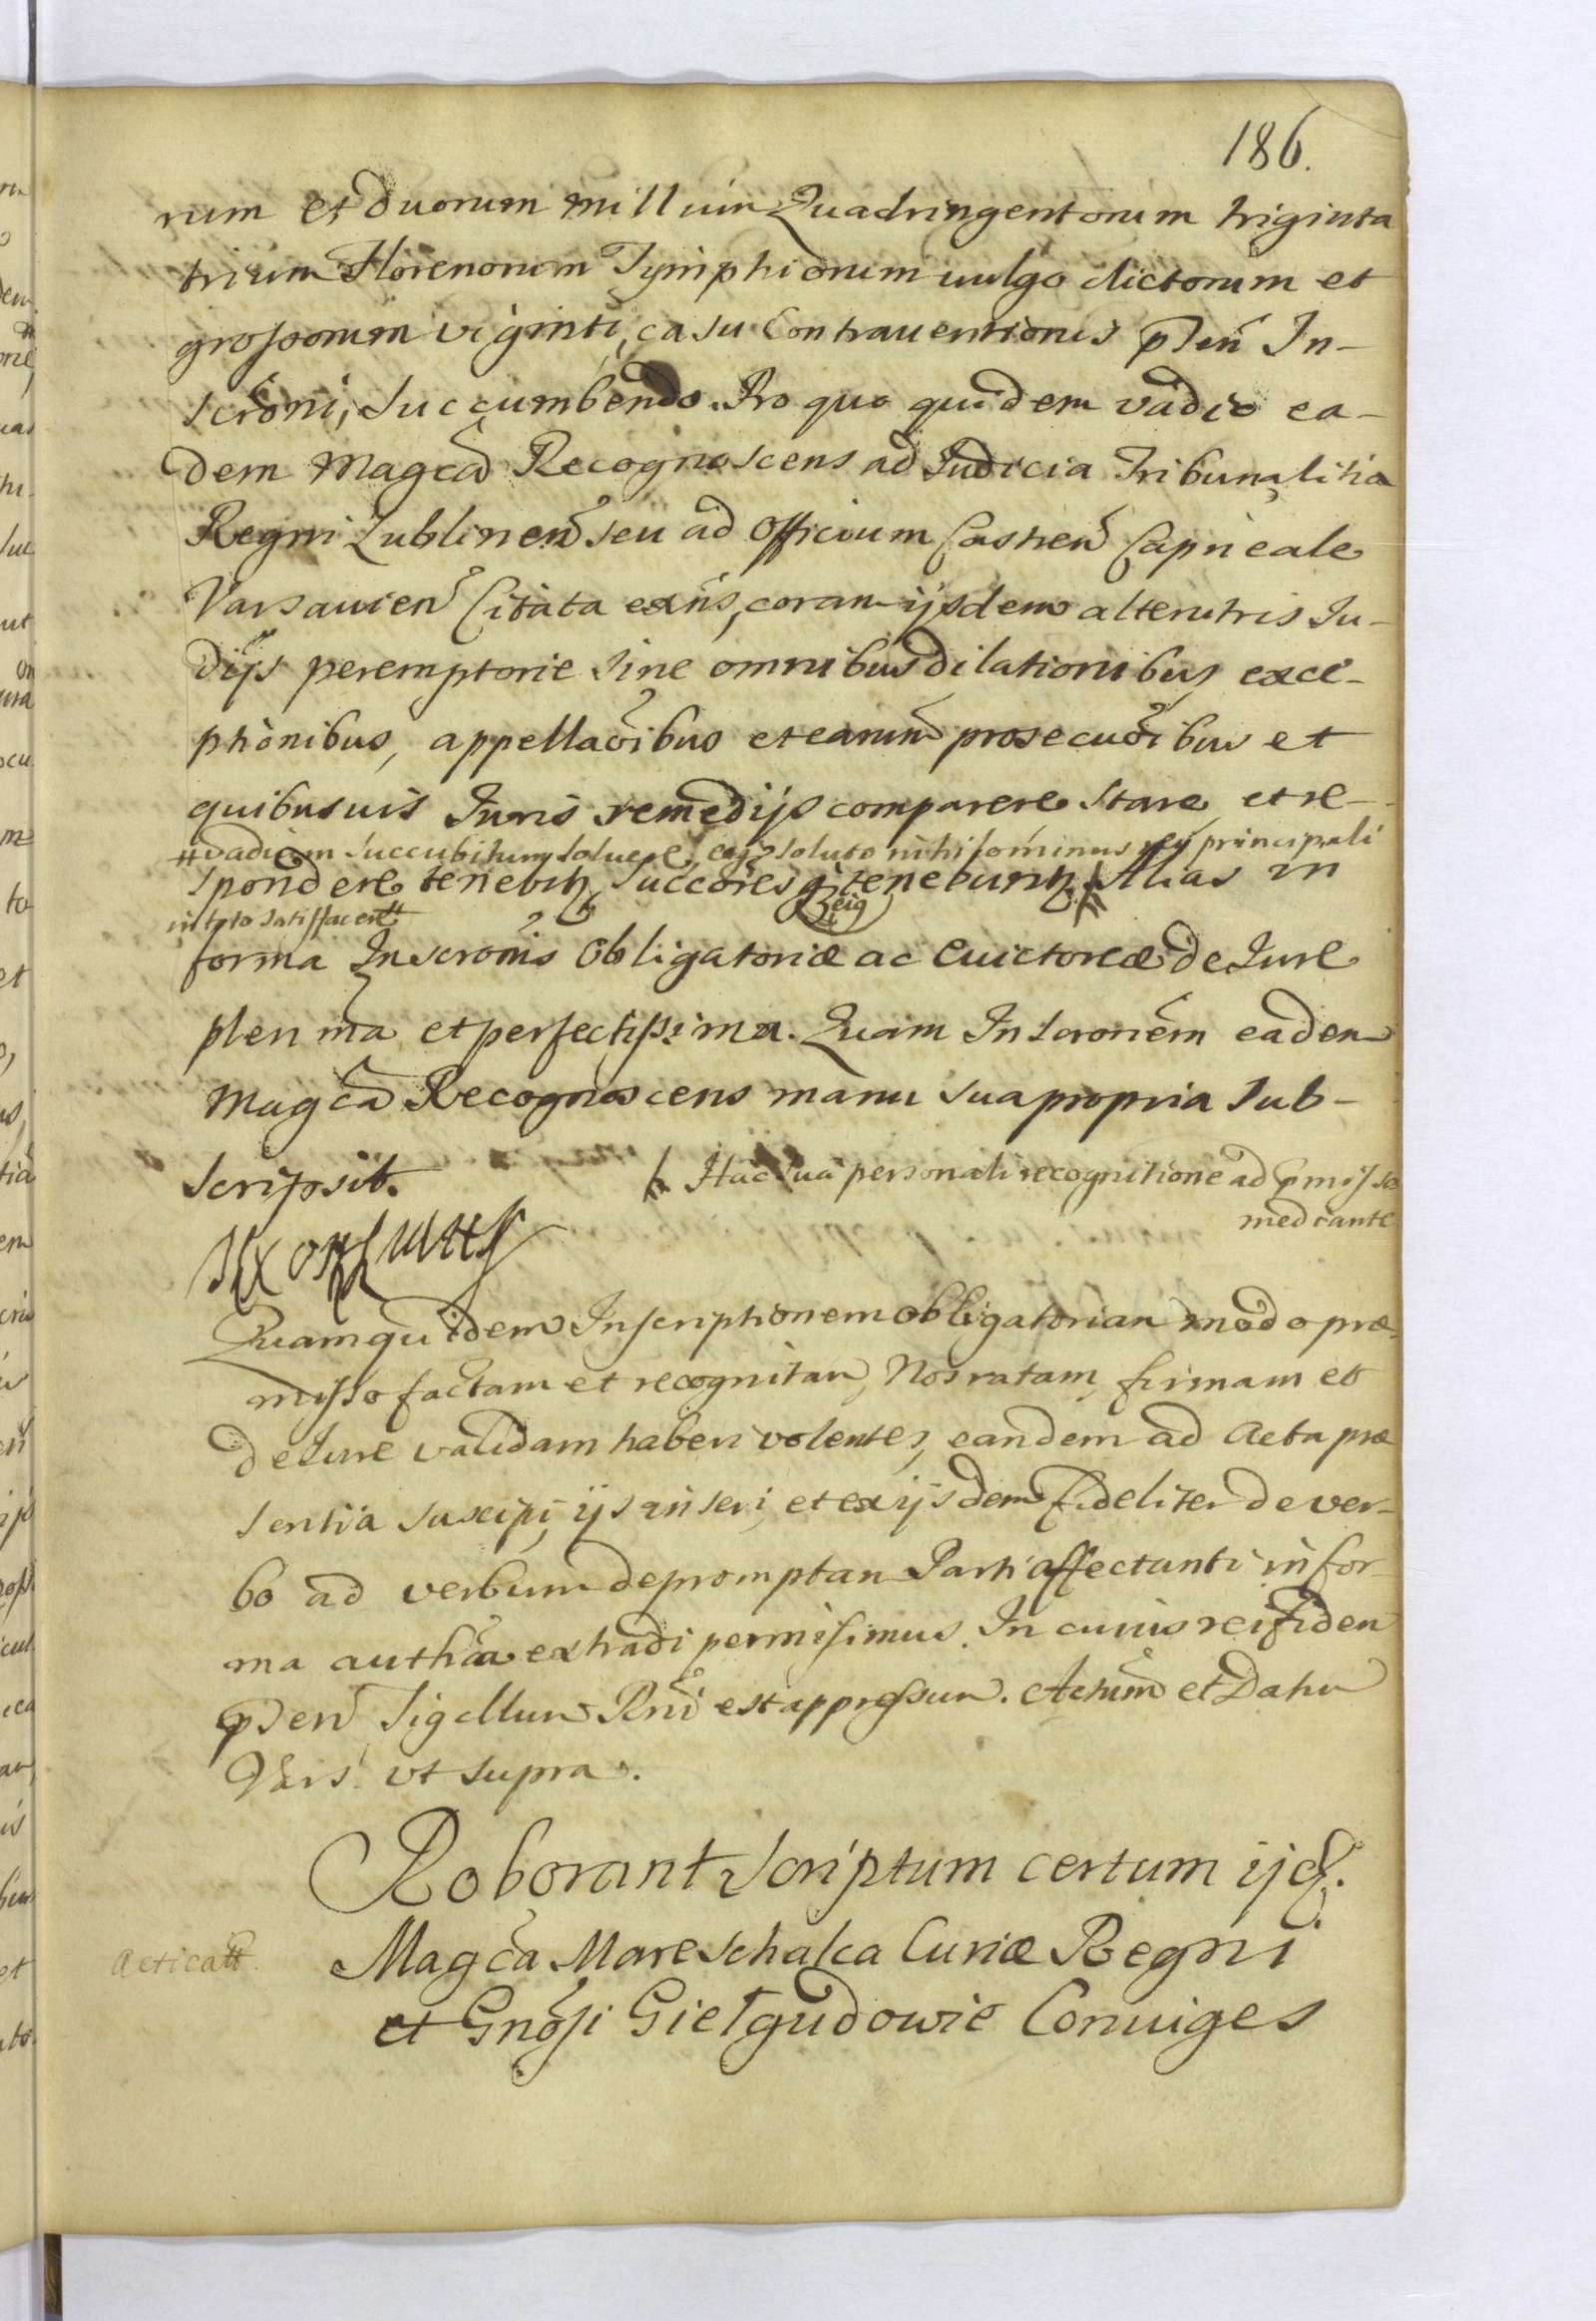 186.
rum et duorum millium Quadringentorum triginta
trium Florenorum Tymphionum uulgo dictorum et
grossorum viginti, casu Contrauentionis pñti In-
scrōni, succumbendo. Pro quo quidem vadio ea-
dem Magca Recognoscens ad Iudicia Tribunalitia
Regni Lublinen seu ad Officium Castren Capneale
Varsauien Citata exñs, coram ijsdem alterutris Iu-
dijs peremptorie sine omnibus dilationibus exce-
ptionibus, appellaõibus et earum prosecuõibus et
quibusuis Iuris remedijs comparere stare et re-
# vadium succubitum soluere, eoqʒ soluto nihilominus rei principali
spondere tenebitʒ, Succōres qʒ tenebuntʒ. Alias in
in toto satisfacere #
eiq
forma Inscrōnis Obligatoriæ ac Euictoreæ de Iure
plenma et perfectissima. Quam Inscronēm eadem
Magca Recognoscens manu sua propria sub-
scripsit.
Hac sua personali recognitione ad pmissa
mediante
Quamquidem Inscriptionem obligatoriam modo præ-
misso factam et recognitam, Nos ratam, firmam et
de Iure validam haberi volentes, eandem ad Acta præ
sentia suscipi, ijs inseri, et ex ijsdem fideliter de ver-
bo ad verbum depromptam Parti affectanti in for-
ma auth̃a extradi permisimus. In cuius rei fidem
pñen Sigillum Rñi est appressum. Actum et Datu
Vars. vt supra.
Roborant Scriptum certum ijd.
acticatt.
Magca Mareschalca Curiæ Regni
et Gnosi Giełgudowie Coniuges